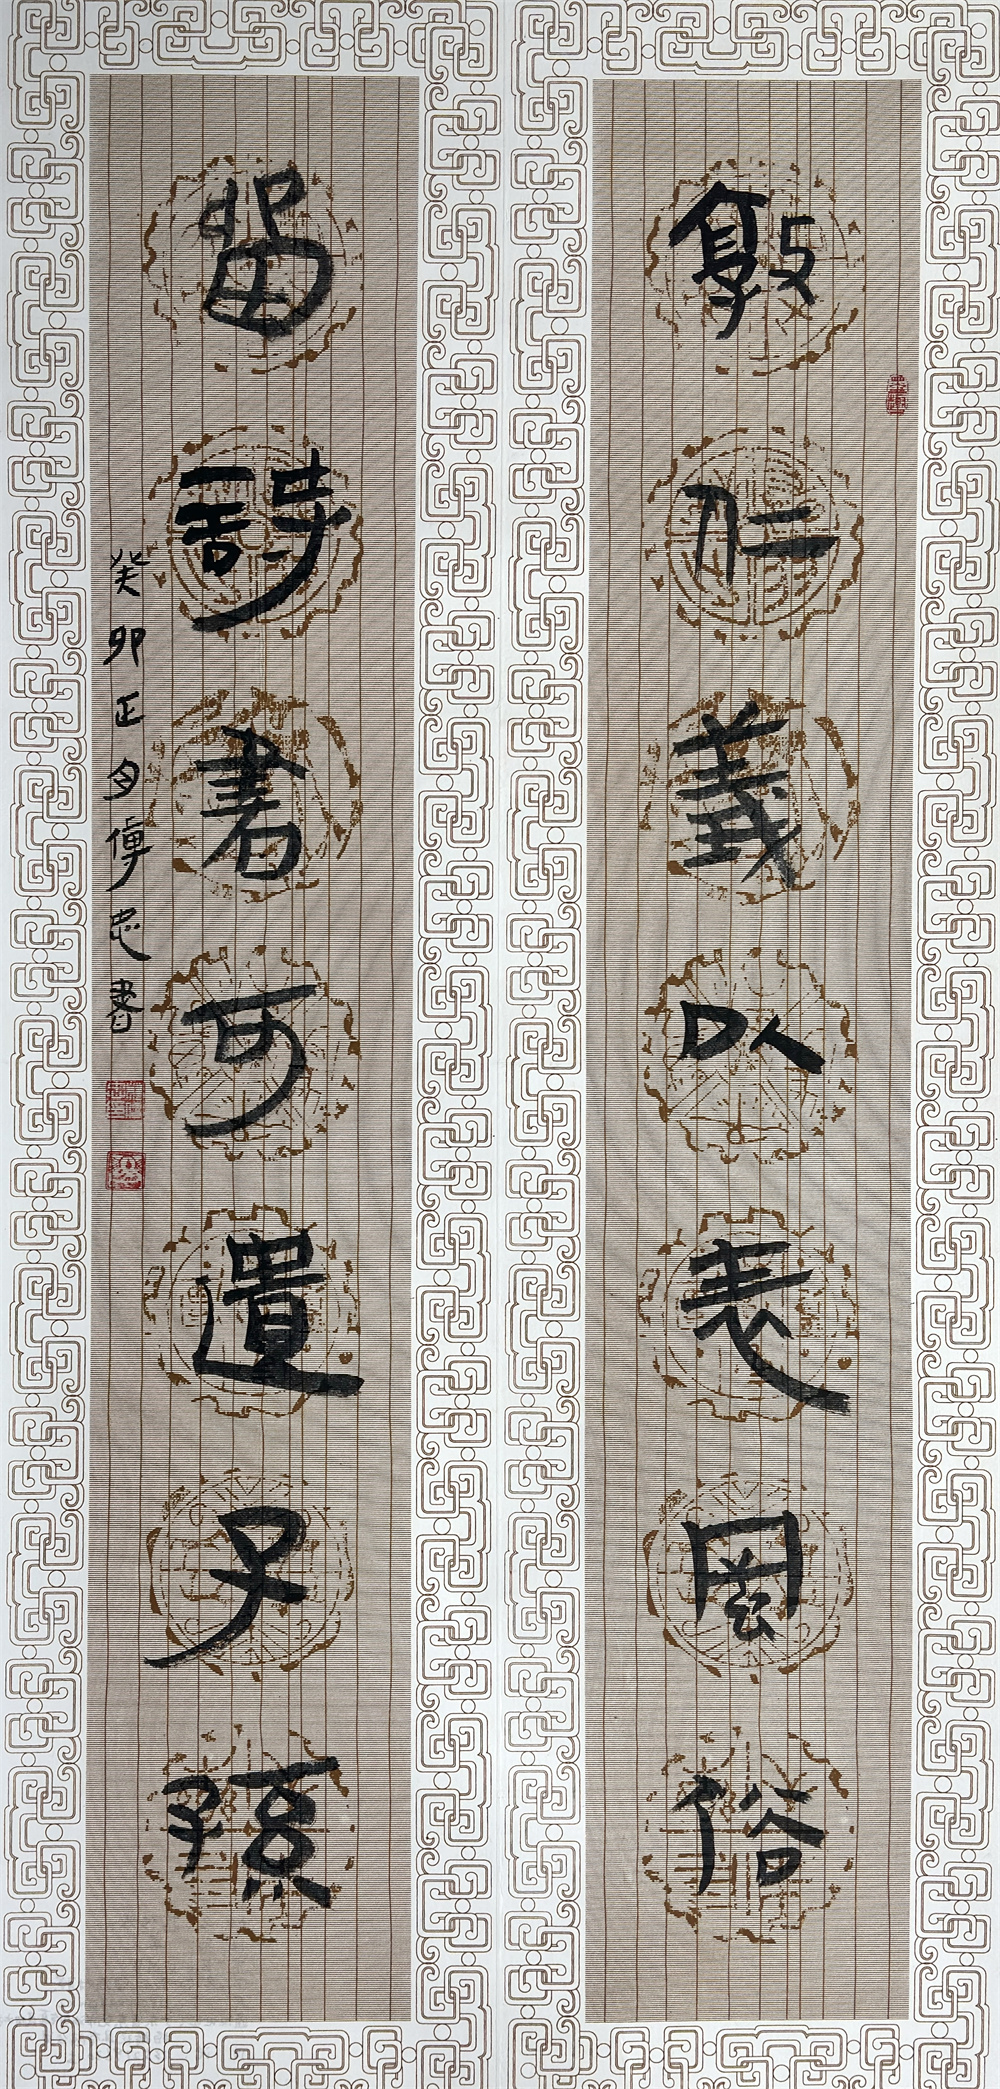 敦仁義以表風俗
留詩書可遺子孫
癸卯正月傳忠書